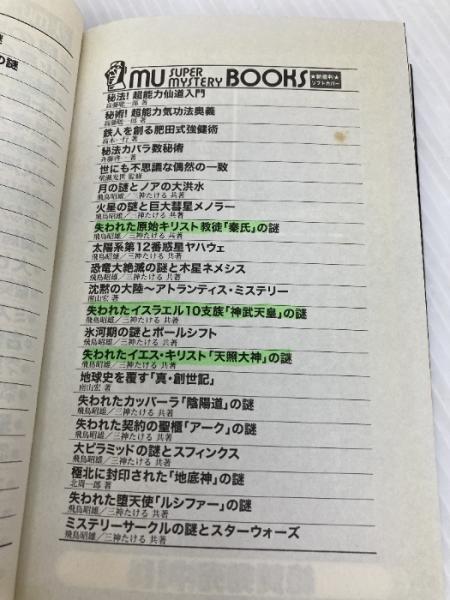 の謎
MU SUPER MYSTERY BOOKS ★新書判★ ソフトカバー
秘法!超能力仙道入門
高藤聡一郎 著
秘術!超能力気功法奥義
高藤聡一郎 著
鉄人を創る肥田式強健術
高木一行 著
秘法カバラ数秘術
斉藤啓一 著
世にも不思議な偶然の一致
月の謎とノアの大洪水
飛鳥昭雄/三神たける 共著
火星の謎と巨大彗星メノラー
飛鳥昭雄/三神たける 共著
失われた原始キリスト教徒「秦氏」の謎
飛鳥昭雄/三神たける 共著
太陽系第12番惑星ヤハウェ
飛鳥昭雄/三神たける 共著
恐竜大絶滅の謎と木星ネメシス
飛鳥昭雄/三神たける 共著
沈黙の大陸〜アトランティス・ミステリー
南山宏 著
失われたイスラエル10支族「神武天皇」の謎
飛鳥昭雄/三神たける 共著
氷河期の謎とポールシフト
飛鳥昭雄/三神たける 共著
失われたイエス・キリスト「天照大神」の謎
飛鳥昭雄/三神たける 共著
地球史を覆す「真・創世記」
南山宏 著
失われたカッバーラ「陰陽道」の謎
飛鳥昭雄/三神たける 共著
失われた契約の聖櫃「アーク」の謎
飛鳥昭雄/三神たける 共著
大ピラミッドの謎とスフィンクス
飛鳥昭雄/三神たける 共著
極北に封印された「地底神」の謎
北周一郎 著
失われた堕天使「ルシファー」の謎
飛鳥昭雄/三神たける 共著
ミステリーサークルの謎とスターウォーズ
飛鳥昭雄/三神たける 共著